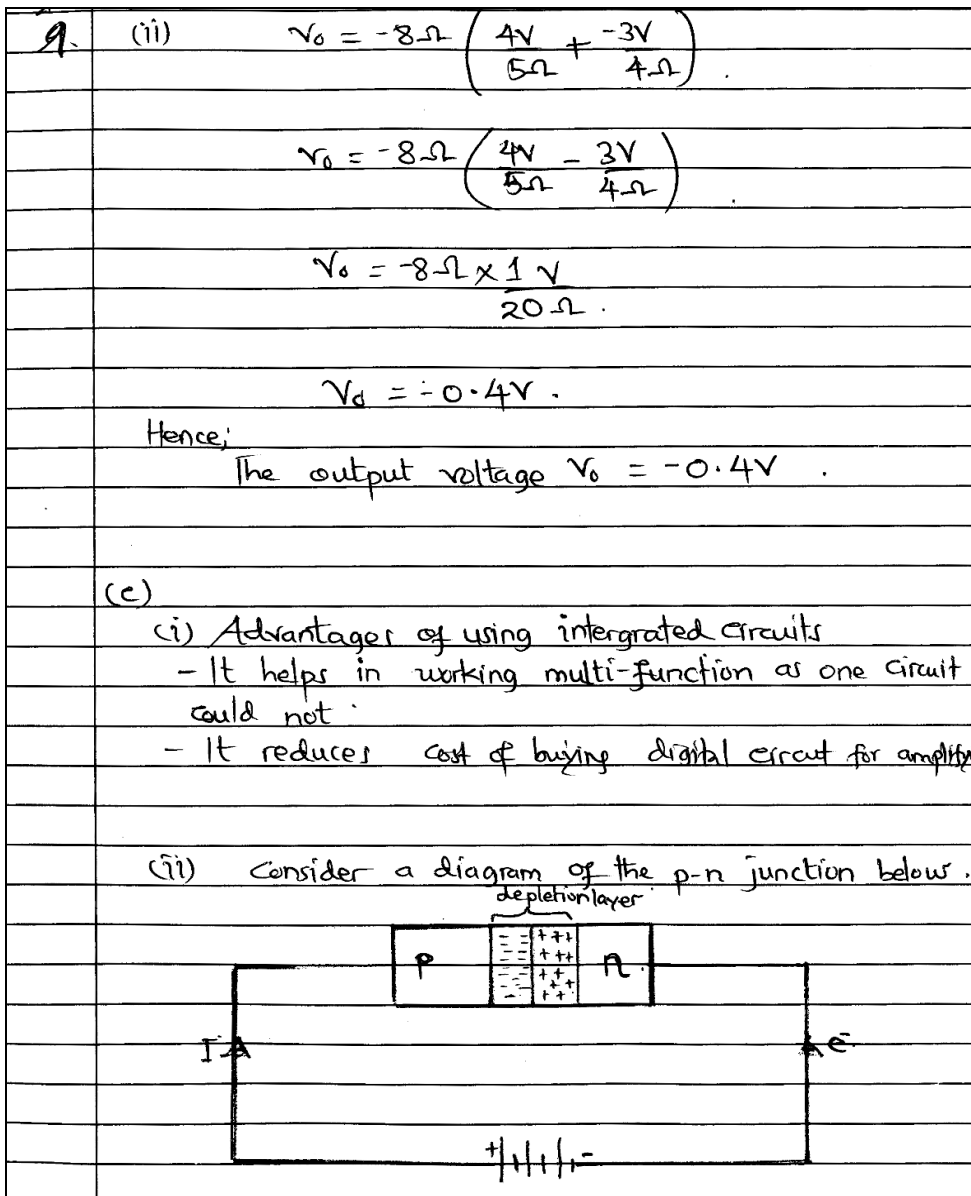 9. (ii) V₀ = -8Ω (4V/5Ω + -3V/4Ω).
V₀ = -8Ω (4V/5Ω - 3V/4Ω).
V₀ = -8Ω × 1V/20Ω.
V₀ = -0.4V.
Hence;
The output voltage V₀ = -0.4V.
(c)
(i) Advantages of using intergrated circuits
- It helps in working multi-function as one circuit
could not.
- It reduces cost of buying digital circut for amplify
(ii) Consider a diagram of the p-n junction below.
depletion layer
P n
I e⁻
+ -